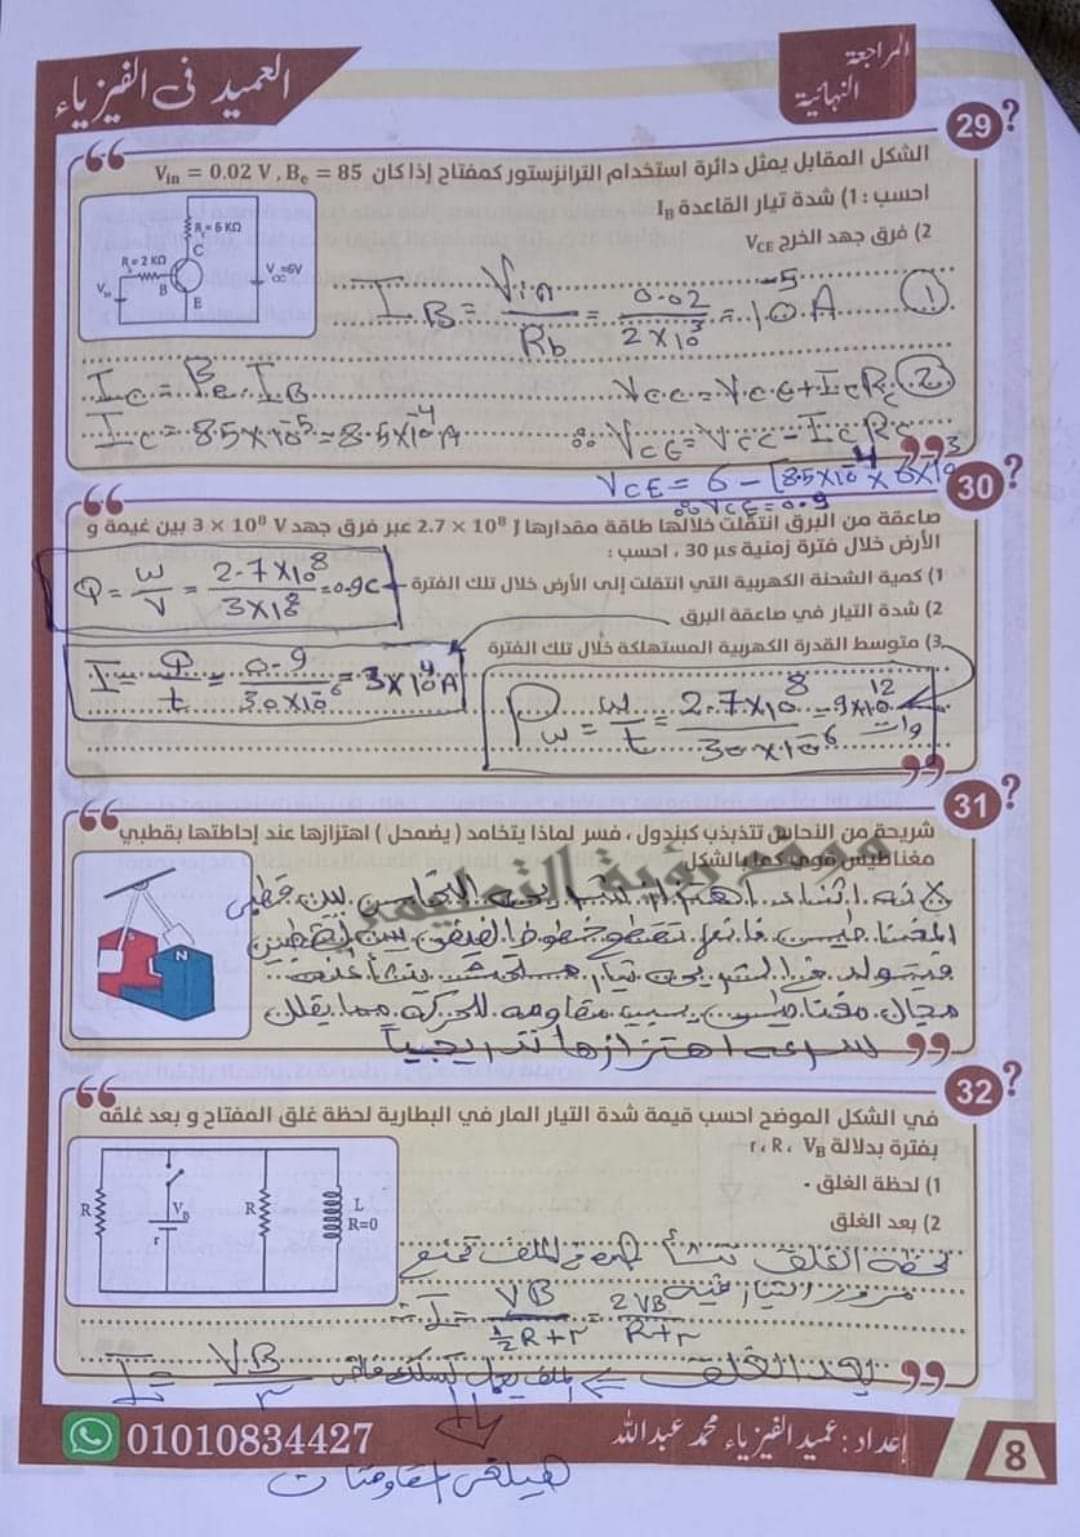 العميد في الفيزياء
المراجعة
النهائية
29
الشكل المقابل يمثل دائرة استخدام الترانزستور كمفتاح إذا كان Vin = 0.02 V , Be = 85
احسب : 1) شدة تيار القاعدة IB
2) فرق جهد الخرج VCE
Rc= 6 KΩ
C
RB= 2 KΩ
B
E
Vin
VCC=6V
IB = Vin / Rb = 0.02 / 2×10³ = 10⁻⁵ A ①
IC = Be . IB
VCC = VCE + IC RC ②
IC = 85×10⁻⁵ = 8.5×10⁻⁴ A
∴ VCE = VCC − IC RC
VCE = 6 − [8.5×10⁻⁴ × 6×10³
∴ VCE = 0.9
30
صاعقة من البرق انتقلت خلالها طاقة مقدارها 2.7 × 10⁸ J عبر فرق جهد 3 × 10⁸ V بين غيمة و
الأرض خلال فترة زمنية 30 μs ، احسب :
1) كمية الشحنة الكهربية التي انتقلت إلى الأرض خلال تلك الفترة
Q = W / V = 2.7×10⁸ / 3×10⁸ = 0.9C
2) شدة التيار في صاعقة البرق
3) متوسط القدرة الكهربية المستهلكة خلال تلك الفترة
I = Q / t = 0.9 / 30×10⁻⁶ = 3×10⁴ A
Pw = W / t = 2.7×10⁸ / 30×10⁻⁶ = 9×10¹² وات
31
شريحة من النحاس تتذبذب كبندول ، فسر لماذا يتخامد ( يضمحل ) اهتزازها عند إحاطتها بقطبي
مغناطيس قوي كما بالشكل
موقع رؤية التعليمي
N
لأنه أثناء اهتزاز شريحة النحاس بين قطبي
المغناطيس فانها تقطع خطوط الفيض بين القطبين
فيتولد في الشريحة تيار مستحث ينشأ عنه
مجال مغناطيسي يسبب مقاومة للحركة مما يقلل
سرعة اهتزازها تدريجياً
32
في الشكل الموضح احسب قيمة شدة التيار المار في البطارية لحظة غلق المفتاح و بعد غلقه
بفترة بدلالة r ، R ، VB
1) لحظة الغلق .
2) بعد الغلق
R
VB
r
R
L
R=0
لحظة الغلق تنشأ في الملف تمنع
مرور التيار فيه
∴ I = VB / ½R+r = 2VB / R+r
بعد الغلق ⇐ الملف يعمل كسلك
I = VB / r
هيلغي المقاومات
إعداد : عميد الفيزياء محمد عبدالله
01010834427
8